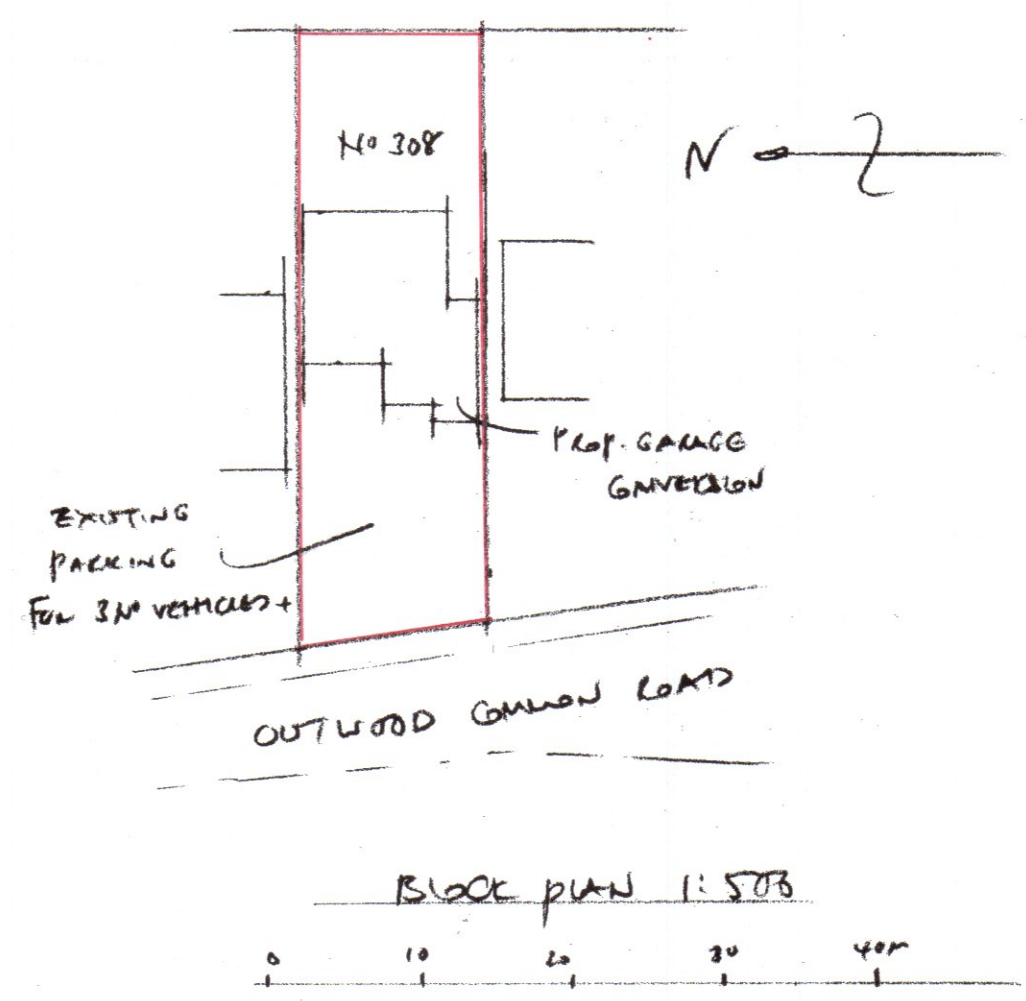 No 308
N
PROP. GARAGE
CONVERSION
EXISTING
PARKING
FOR 3No VEHICLES +
OUTWOOD COMMON ROAD
BLOCK PLAN 1:500
0 10 20 30 40m